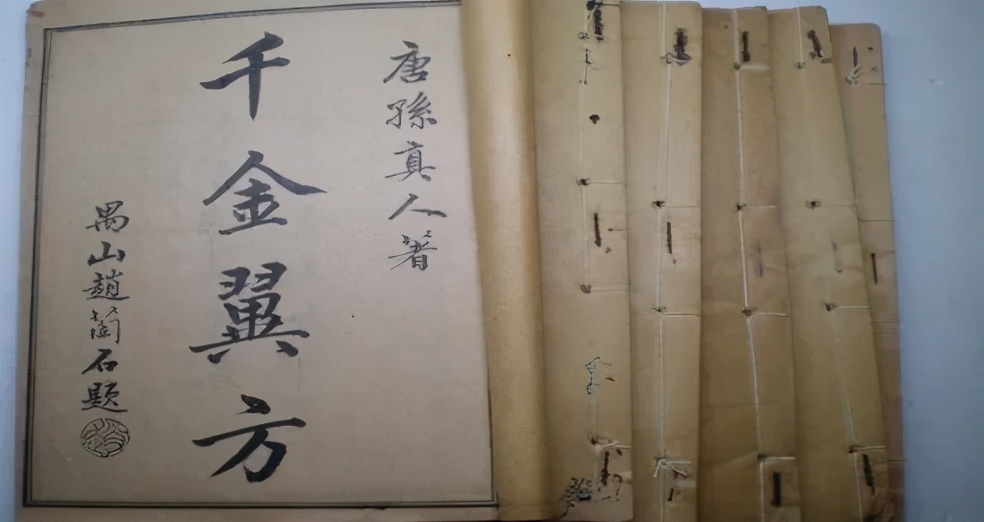 唐孫真人著
千金翼方
禺山趙石題